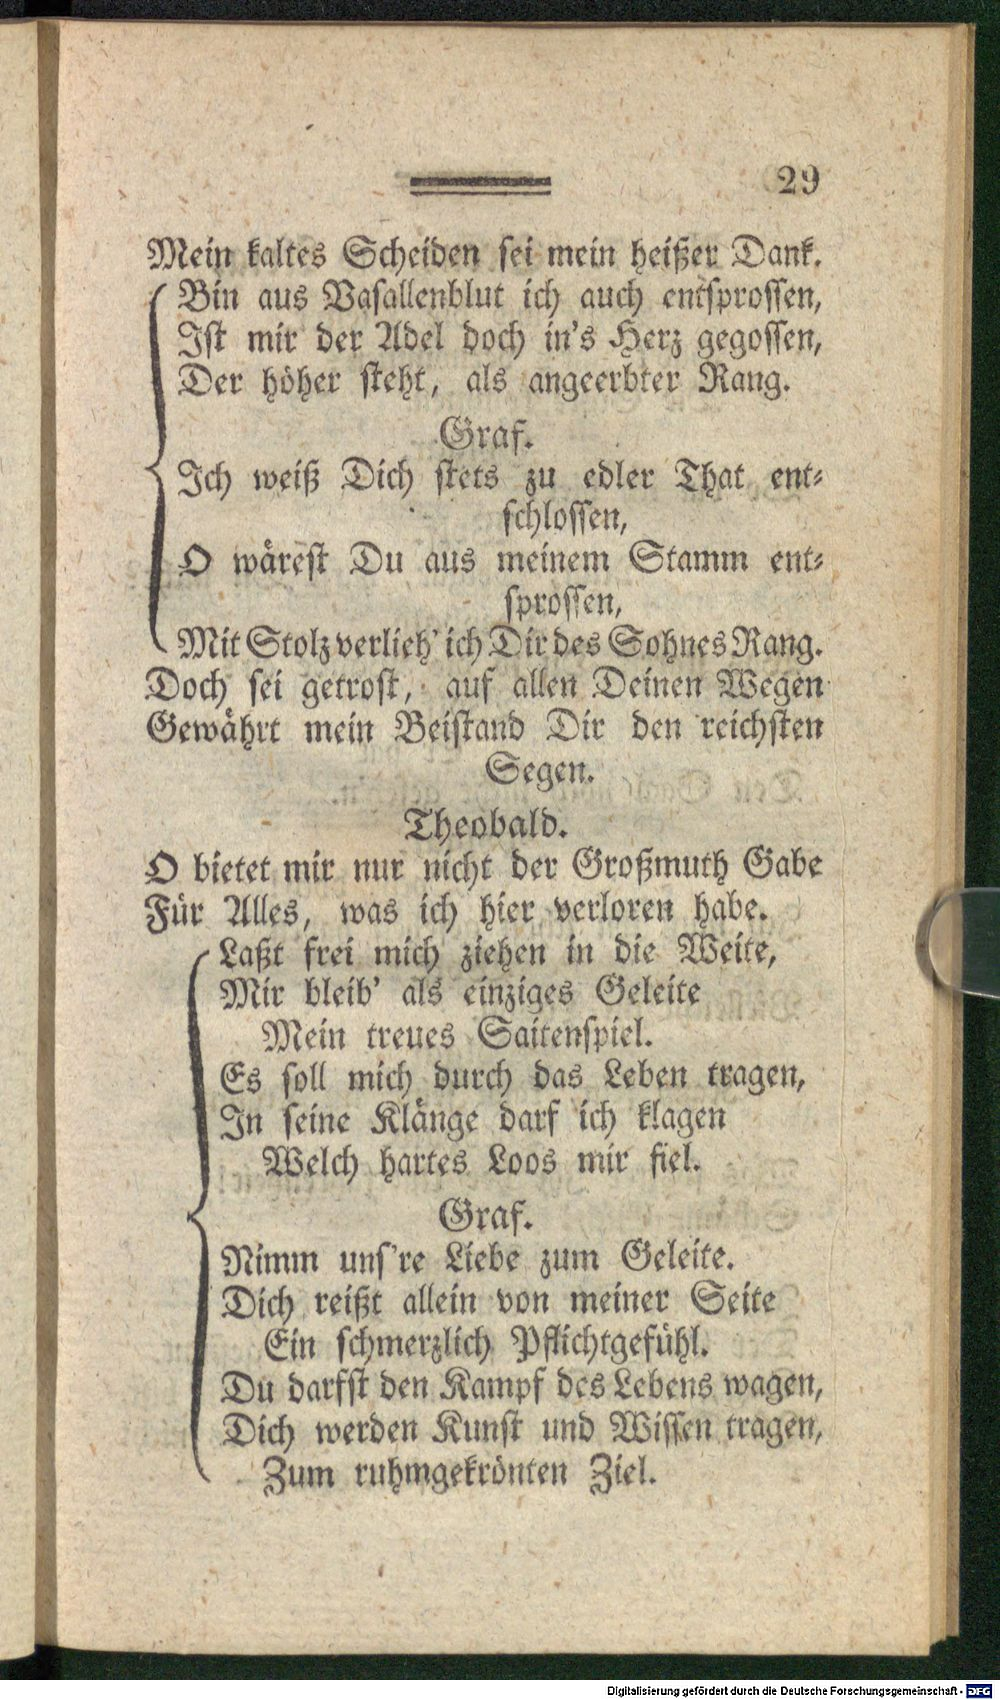 29
Mein kaltes Scheiden sei mein heißer Dank.
Bin aus Vasallenblut ich auch entsprossen,
Ist mir der Adel doch in's Herz gegossen,
Der höher steht, als angeerbter Rang.
Graf.
Ich weiß Dich stets zu edler That ent-
schlossen,
O wärest Du aus meinem Stamm ent-
sprossen,
Mit Stolz verlieh' ich Dir des Sohnes Rang.
Doch sei getrost, auf allen Deinen Wegen
Gewährt mein Beistand Dir den reichsten
Segen.
Theobald.
O bietet mir nur nicht der Großmuth Gabe
Für Alles, was ich hier verloren habe.
Laßt frei mich ziehen in die Weite,
Mir bleib' als einziges Geleite
Mein treues Saitenspiel.
Es soll mich durch das Leben tragen,
In seine Klänge darf ich klagen
Welch hartes Loos mir fiel.
Graf.
Nimm uns're Liebe zum Geleite.
Dich reißt allein von meiner Seite
Ein schmerzlich Pflichtgefühl.
Du darfst den Kampf des Lebens wagen,
Dich werden Kunst und Wissen tragen,
Zum ruhmgekrönten Ziel.
Digitalisierung gefördert durch die Deutsche Forschungsgemeinschaft - DFG